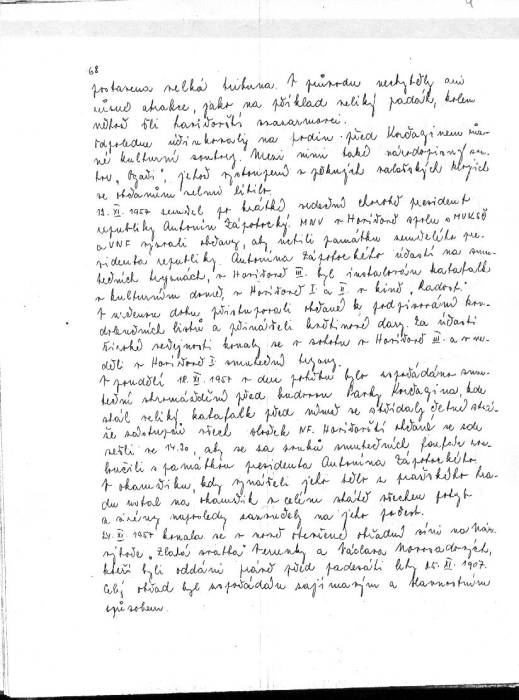 68
postavena velká tribuna. V průvodu nechyběly ani
různé atrakce, jako na příklad veliký padák, kolem
něhož šli havířovští svazarmovci.
Odpoledne účinkovaly na podiu před Korčaginem růz-
né kulturní soubory. Mezi nimi také národopisný sou-
bor, jehož vystoupení v pěkných valašských krojích
se občanům velmi líbilo.
13. XI. 1957 zemřel po krátké nemoci president
republiky Antonín Zápotocký. MNV v Havířově spolu s MVKSČ
a VNF vyzvali občany, aby uctili památku zemřelého pre-
sidenta republiky Antonína Zápotockého účastí na smu-
tečních tryznách. V Havířově III. byl instalován katafalk
v kulturním domě, v Havířově I. a II. v kině "Radost".
V večeru dotu, přistupovali občané k podpisování kon-
dolenčních listů a přinášeli květinové dary. Za účasti
široké veřejnosti konaly se v sobotu v Havířově III. a v ne-
děli v Havířově I. smuteční tryzny.
V pondělí 18. XI. 1957 v den pohřbu bylo uspořádáno smu-
teční shromáždění před budovou Parky Korčagina, kde
stál veliký katafalk před nímž se střídaly četné strá-
že zástupců všech složek NF. Havířovští občané se zde
sešli ve 14.30, aby se za zvuků smutečních fanfár roz-
loučili s památkou presidenta Antonína Zápotockého.
V okamžiku, kdy vynášeli jeho tělo z pražského hra-
du ustal na okamžik v celém státě všechen pohyb
a sirény naposledy zazněly na jeho počest.
24. XI. 1957 konala se v nově otevřené obřadní síni na Náz-
vistově "Zlatá svatba" Terunky a Václava Novosadových,
kteří byli oddáni právě před padesáti lety 25. XI. 1907.
Celý obřad byl uspořádán zajímavým a slavnostním
způsobem.